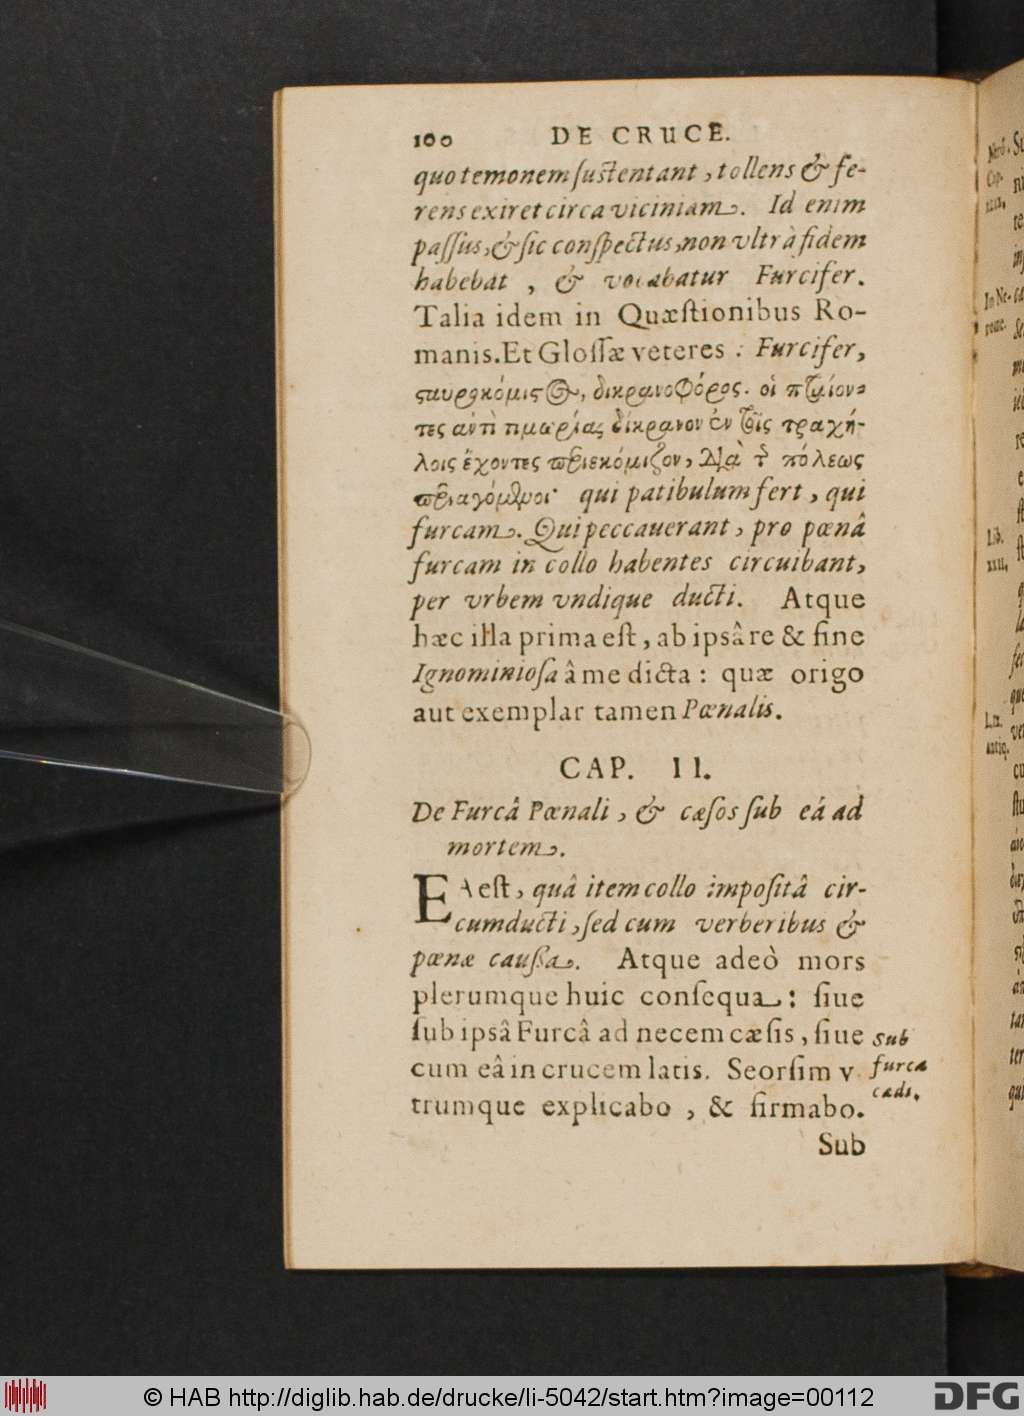 100 DE CRUCE.
quo temonem ſuſtentant, tollens & fe-
rens exiret circa viciniam. Id enim
paſſus, & ſic conſpectus, non vltrà fidem
habebat, & vocabatur Furcifer.
Talia idem in Quæſtionibus Ro-
manis. Et Gloſſæ veteres : Furcifer,
ϛαυροκόμιϛος, δικρανοφόρος. οἱ πταίον-
τες αντὶ τιμωρίας δίκρανον ἐν τοῖς τραχή-
λοις ἔχοντες περιεκόμιζον, διὰ τῆς πόλεως
περιαγόμενοι· qui patibulum fert, qui
furcam. Qui peccauerant, pro pœnâ
furcam in collo habentes circuibant,
per vrbem vndique ducti. Atque
hæc illa prima eſt, ab ipsâ re & fine
Ignominioſa â me dicta : quæ origo
aut exemplar tamen Pœnalis.
CAP. II.
De Furcâ Pœnali, & cæſos ſub eâ ad
mortem.
EA eſt, quâ item collo impoſitâ cir-
cumducti, ſed cum verberibus &
pœnæ cauſſa. Atque adeò mors
plerumque huic conſequa : ſiue
ſub ipsâ Furcâ ad necem cæſis, ſiue
cum eâ in crucem latis. Seorſim v
trumque explicabo, & firmabo.
Sub
furca
cædi.
Sub
Cap.
In Ne-
rone.
Lib.
XXII.
antiq.
© HAB http://diglib.hab.de/drucke/li-5042/start.htm?image=00112
DFG